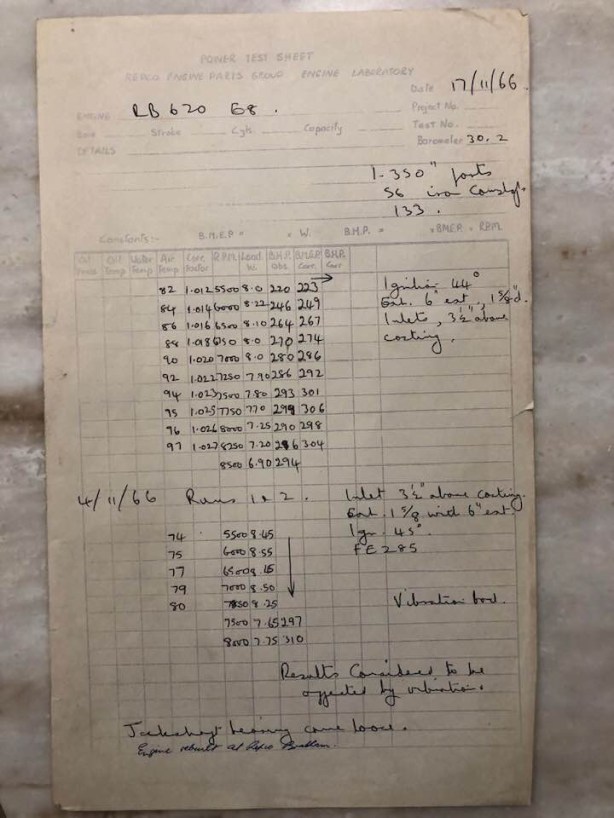 POWER TEST SHEET
REPCO ENGINE PARTS GROUP ENGINE LABORATORY
Date 17/11/66
ENGINE RB 620 E8. Project No.
Bore Stroke Cyls. Capacity Test No.
DETAILS Barometer 30.2
1.350" ports
S6 iron Camshaft
133.
Constants:- B.M.E.P = × W. B.H.P. = × BMEP. × RPM.
Oil Press Oil Temp Water Temp Air Temp Corr Factor R.P.M. Load W. B.H.P. Obs B.M.E.P. Corr. B.H.P. Corr
82 1.012 5500 8.0 220 223 Ignition 44°
84 1.014 6000 8.22 246 249 Ext. 6" ext., 1 5/8"d.
86 1.016 6500 8.10 264 267 Inlets, 3½" above
88 1.018 6750 8.0 270 274 casting.
90 1.020 7000 8.0 280 286
92 1.022 7250 7.90 286 292
94 1.023 7500 7.80 293 301
95 1.025 7750 7.70 299 306
96 1.026 8000 7.25 290 298
97 1.027 8250 7.20 296 304
8500 6.90 294
4/11/66 Runs 1 & 2. Inlet 3½" above casting.
Ext. 1 5/8 with 6" ext.
74 5500 8.45 Ign. 45°.
75 6000 8.55 FE 285
77 6500 8.15
79 7000 8.50
80 7250 8.25 Vibration bad.
7500 7.65 297
8000 7.75 310
Results Considered to be
affected by vibration.
Jackshaft bearing came loose.
Engine rebuilt at Repco